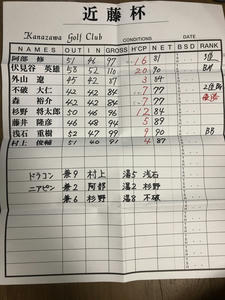 近藤杯
Kanazawa Golf Club
CONDITIONS
NAMES OUT IN GROSS H'CP NET BSD DATE RANK
阿部 修 51 46 97 16 81 5位
伏見谷 英雄 58 52 110 20 90 BM
外山 遼 42 87 3 84
不破 大仁 42 42 84 7 77 2位
森 裕介 42 42 84 7 77 優勝
杉野 将太郎 50 46 96 12 84
藤井 隆彦 46 48 94 5 89
浅石 重樹 52 47 99 9 90 BB
村上 俊輔 51 40 91 4 87
ドラコン 兼9 村上 湯5 浅石
ニアピン 兼2 阿部 湯2 杉野
兼6 杉野 湯8 不破